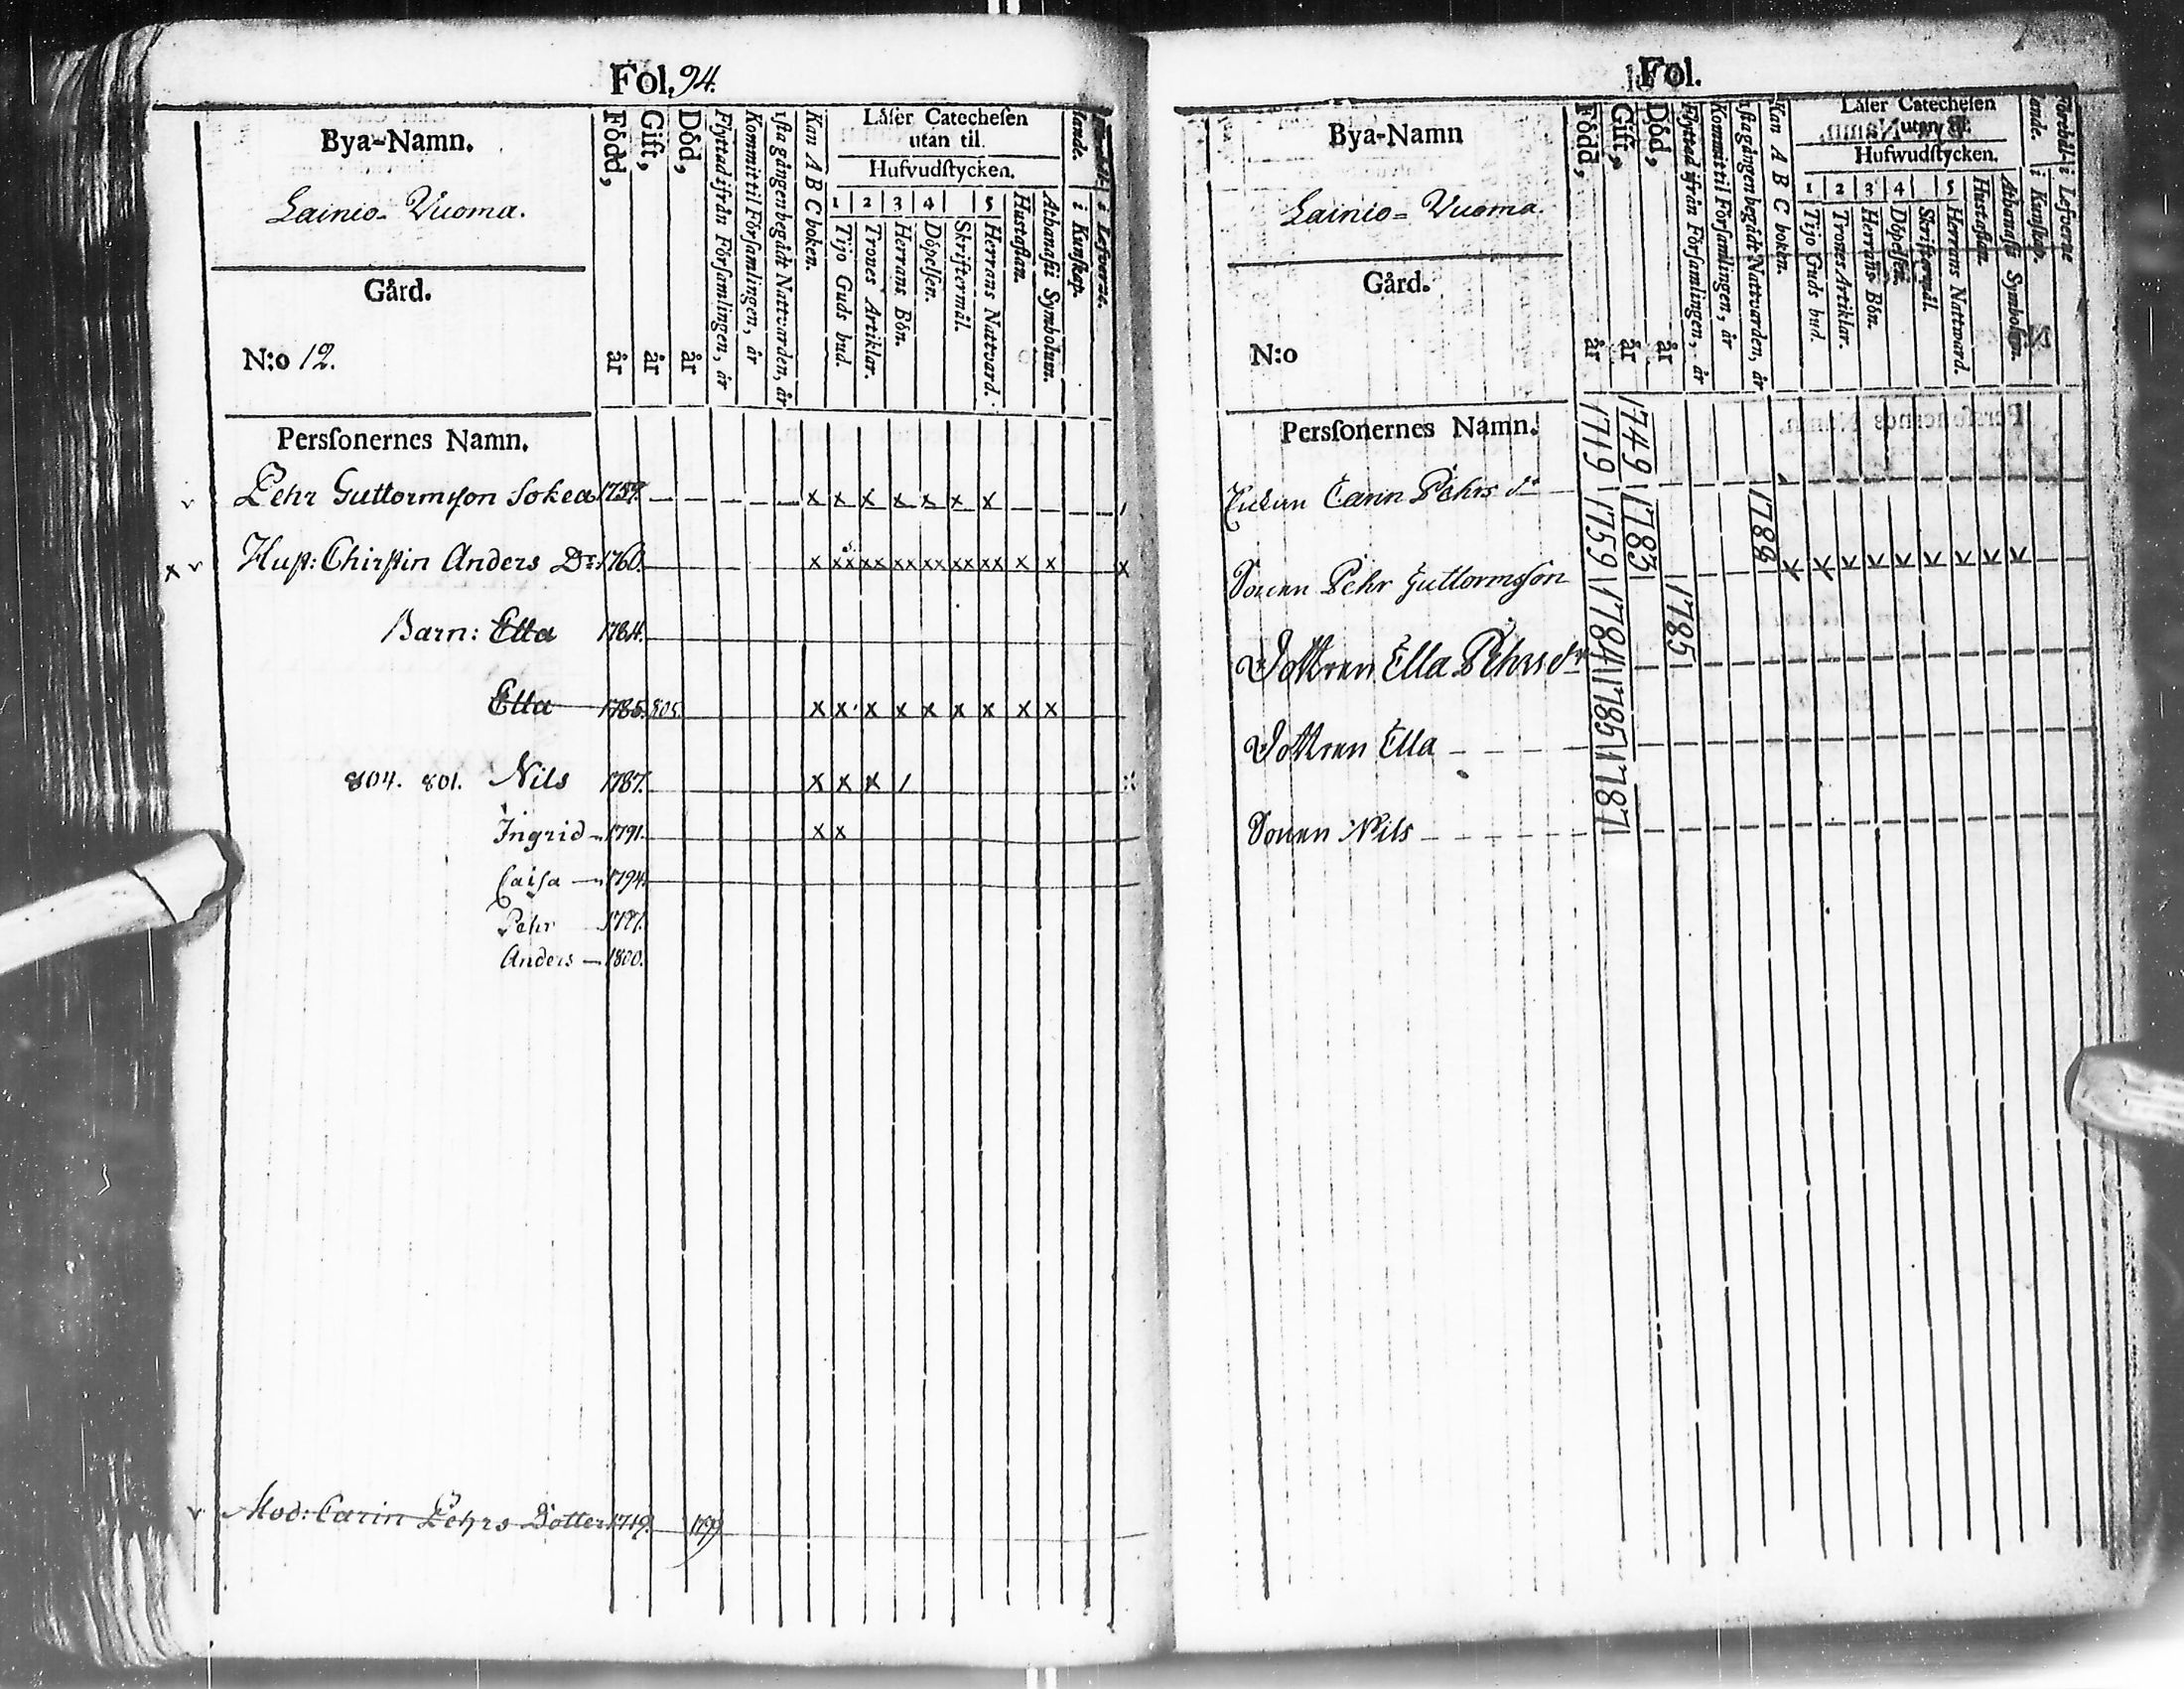 Fol. 94.
Bya-Namn.
Lainio-Vuoma.
Gård.
N:o 12.
Född, år
Gift, år
Död, år
Flyttad ifrån Församlingen, år
Kommit til Församlingen, år
gången begådt Nattvarden, år
Kan A B C boken.
Låser Catechesen
utan til.
Hufvudstycken.
1 2 3 4 5
Tijo Guds bud.
Trones Artiklar.
Herrans Bön.
Döpelsen.
Skriftermål.
Herrans Nattvard.
Hustaflan.
Athanasii Symbolum.
i Kunskap.
i Lefverne.
Personernes Namn.
v Pehr Guttormsson Sokea x x x x x x x
x v Hust: Chirstin Anders Dr 1760. x xx xx xx xx xx xx x x x
Barn: Ella 1784.
Ella 1785. 805. x x x x x x x x x
804. 801. Nils 1787. x x x /
Ingrid 1791. x x
Caisa 1794.
Pehr
Anders 1800.
v Mod: Carin Pehrs Dotter 1719. 1799
Fol.
Bya-Namn
Lainio=Vuoma.
Gård.
N:o
Född, år
Gift, år
Död, år
Flyttad ifrån Församlingen, år
Kommit til Församlingen, år
gången begådt Nattvarden, år
Kan A B C boken.
Låser Catechesen
utan til.
Hufwudstycken.
1 2 3 4 5
Tijo Guds bud.
Trones Artiklar.
Herrans Bön.
Döpelsen.
Skriftermål.
Herrans Nattvard.
Hustaflan.
Athanasii Symbolum.
i Kunskap.
i Lefverne
Personernes Namn.
Carin Pehrs dr 1719 1749
Sonen Pehr Guttormsson 1759 1783 1788 x x x x x x x x x
Dottren Ella Pehrs dr 1784 1785
Dottren Ella 1785
Sonen Nils 1787